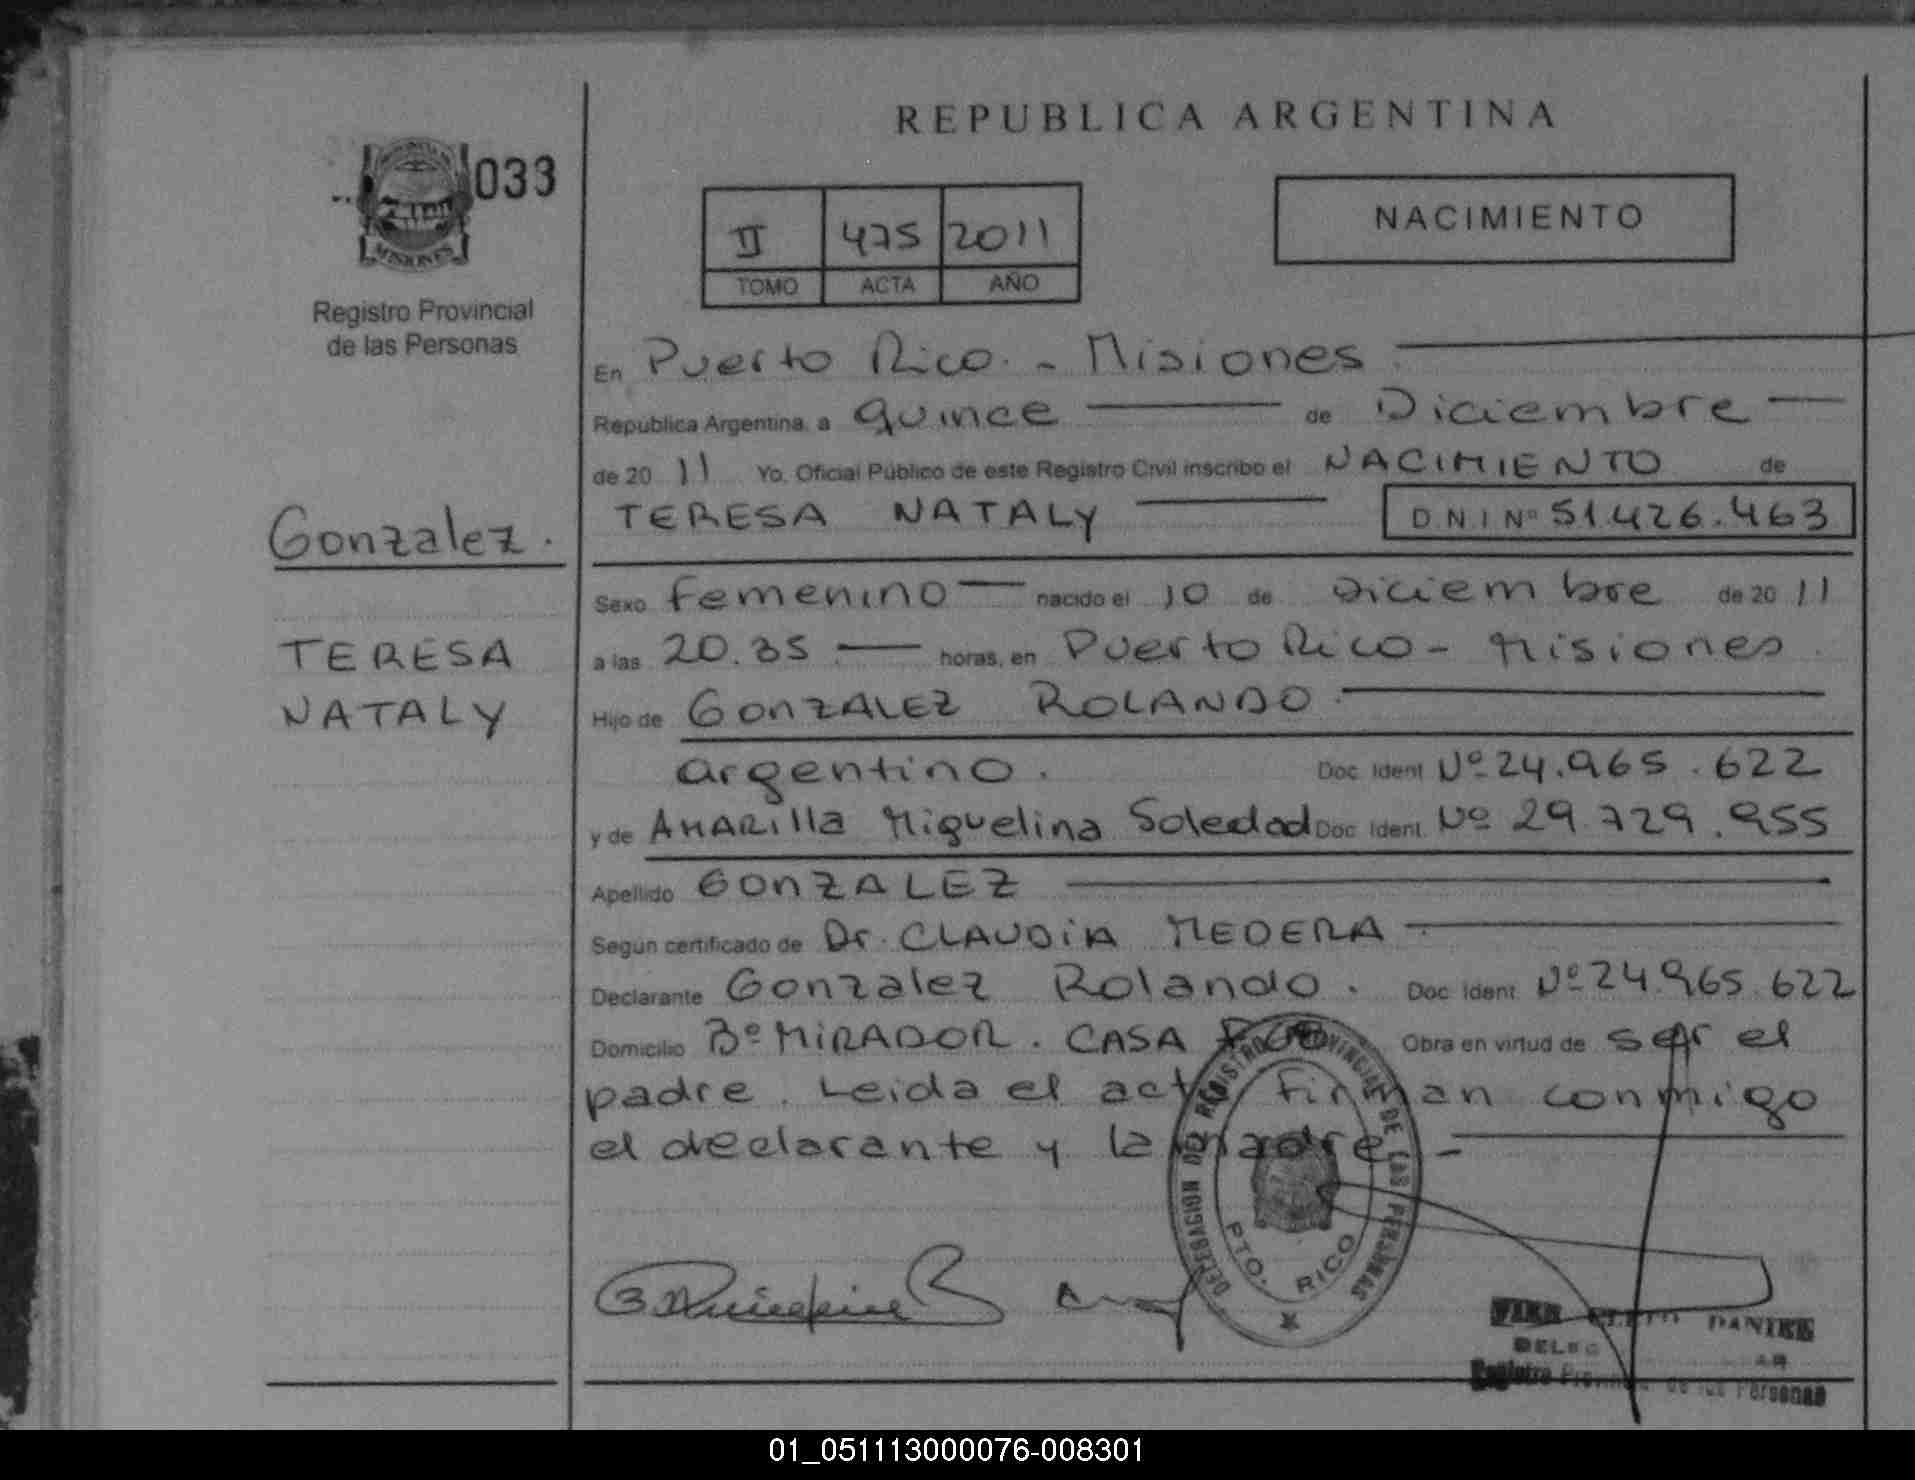 REPUBLICA ARGENTINA
033
MISIONES
Registro Provincial
de las Personas
II 475 2011
TOMO ACTA AÑO
NACIMIENTO
En Puerto Rico. - Misiones
República Argentina, a quince de Diciembre
de 20 11 Yo, Oficial Público de este Registro Civil inscribo el NACIMIENTO de
TERESA NATALY D.N.I Nº 51.426.463
Gonzalez.
TERESA
NATALY
Sexo femenino nacido el 10 de Diciembre de 20 11
a las 20.35 horas, en Puerto Rico - Misiones
Hijo de GONZALEZ ROLANDO
argentino. Doc. Ident Nº 24.965.622
y de AMARilla Miguelina Soledad Doc. Ident. Nº 29.729.955
Apellido GONZALEZ
Según certificado de Dr. CLAUDIA MEDERA
Declarante Gonzalez Rolando. Doc. Ident. Nº 24.965.622
Domicilio Bº MIRADOR. CASA Obra en virtud de ser el
padre. Leida el acta firman conmigo
el declarante y la madre -
DELEGACION DEL REGISTRO PROVINCIAL DE LAS PERSONAS
PTO. RICO
DANIEL
Registro Provincial de las Personas
01_051113000076-008301